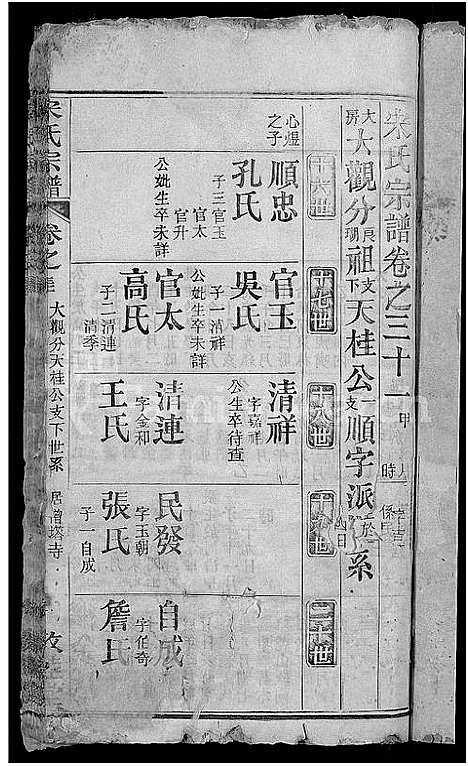 宋氏宗譜卷之三十一
大房大觀分長瑚祖支下天桂公一支順字派
系
十六世
十七世
十八世
二十世
心煜之子
順忠
孔氏
子三官玉
官太
官升
公妣生卒未詳
官玉
吳氏
子一清祥
公妣生卒未詳
官太
高氏
子二清連
清季
清祥
字嘉祥
公生卒待查
清連
字金和
王氏
民發
字玉朝
張氏
子一自成
自成
字伯奇
詹氏
宋氏宗譜
卷之
大觀分天桂公支下世系
居僧塔寺